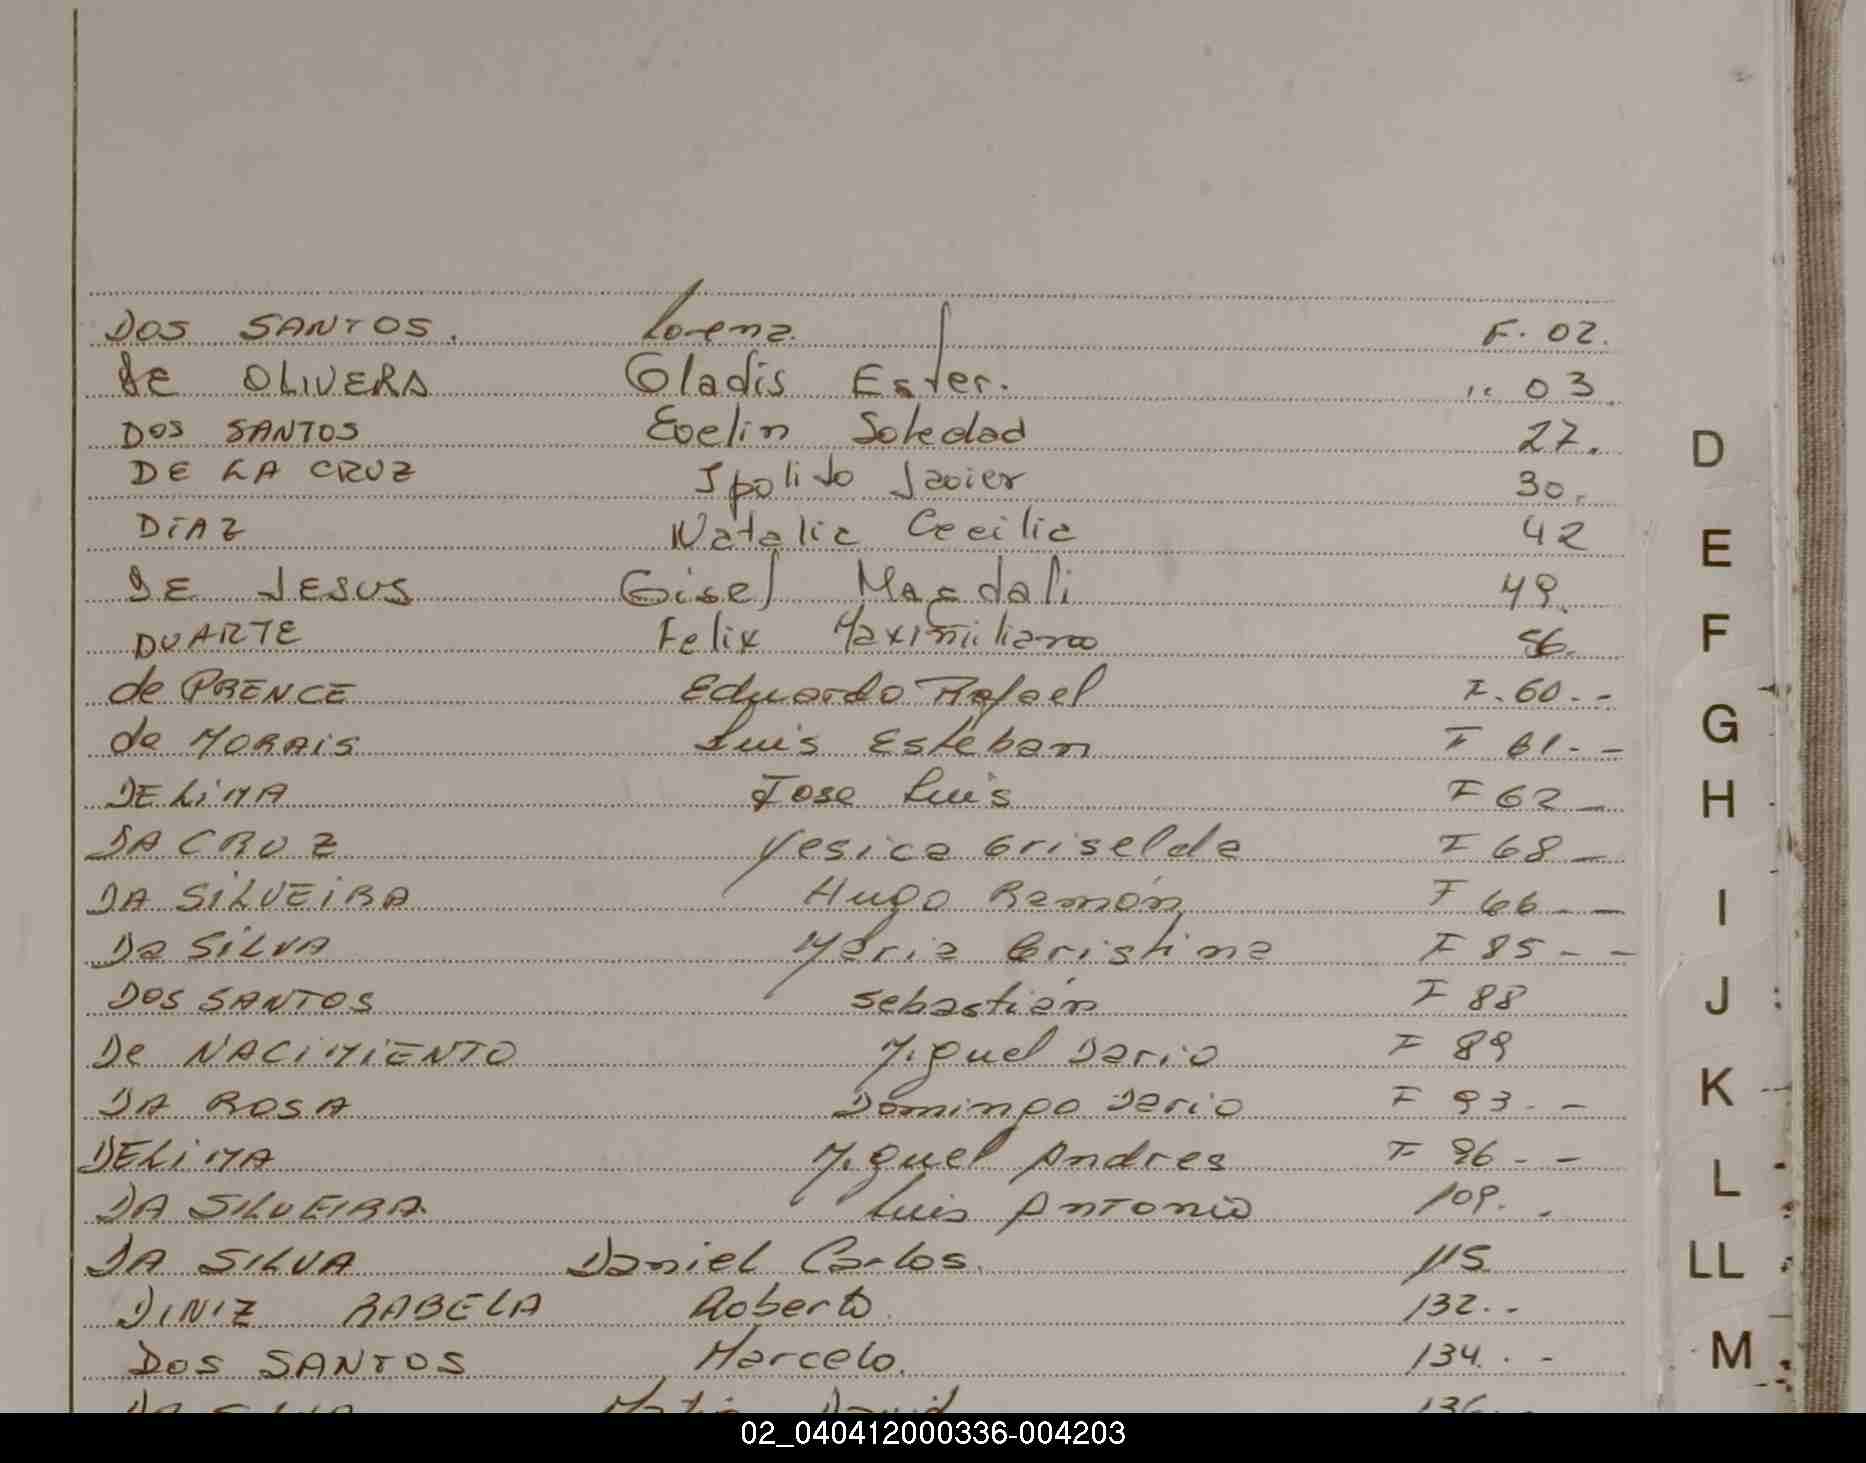 DOS SANTOS. Lorena. F. 02.
de OLIVERA Gladis Ester. " 03.
DOS SANTOS Evelin Soledad 27.
DE LA CRUZ Ipolito Javier 30.
DIAZ Natalia Cecilia 42
DE JESUS Gisel Magdali 49.
DUARTE Felix Maximiliano 56.
de PRENCE Eduardo Rafael F. 60.--
de MORAIS Luis Esteban F 61.--
DELIMA Jose Luis F 62 -
DA CRUZ Yesica Griselda F 68 -
DA SILVEIRA Hugo Ramón F 66 --
Da SILVA Maria Cristina F 85 --
DOS SANTOS Sebastián F 88
De NACIMIENTO Miguel Dario F 89
DA ROSA Domingo Dario F 93.--
DELIMA Miguel Andres F 96 --
DA SILVEIRA Luis Antonio 109..
DA SILVA Daniel Carlos. 115
DINIZ RABELA Roberto. 132..
DOS SANTOS Marcelo. 134..-
DA SILVA David 136
D
E
F
G
H
I
J
K
L
LL
M
02_040412000336-004203